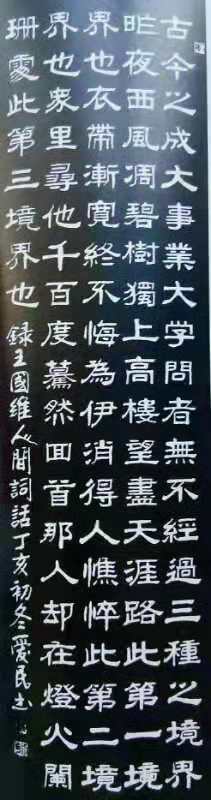 古今之成大事業大学問者無不經過三種之境界
昨夜西風凋碧樹獨上高樓望盡天涯路此第一境
界也衣帶漸寬終不悔為伊消得人憔悴此第二境
界也衆里尋他千百度驀然回首那人却在燈火闌
珊處此第三境界也 録王國維人间詞話丁亥初冬愛民书